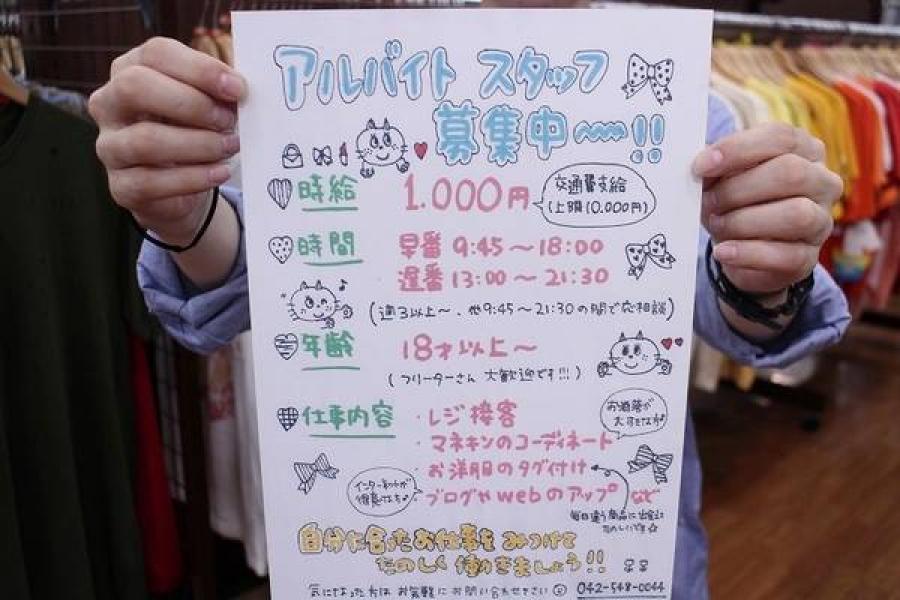 アルバイト スタッフ
募集中〜!!
時給 1.000円
交通費支給
(上限10.000円)
時間 早番 9:45〜18:00
遅番 13:00〜21:30
(週3以上〜、他9:45〜21:30の間で応相談)
年齢 18才以上〜
(フリーターさん 大歓迎です!!!)
仕事内容 ・レジ接客
・マネキンのコーディネート
・お洋服のタグ付け
・ブログやwebのアップ など
お洒落が
インターネットが
毎日違う商品に出会えて
たのしいです☆
自分に合ったお仕事をみつけて
たのしく働きましょう!!
気になった方は お気軽にお問い合わせ下さい 042-548-0044